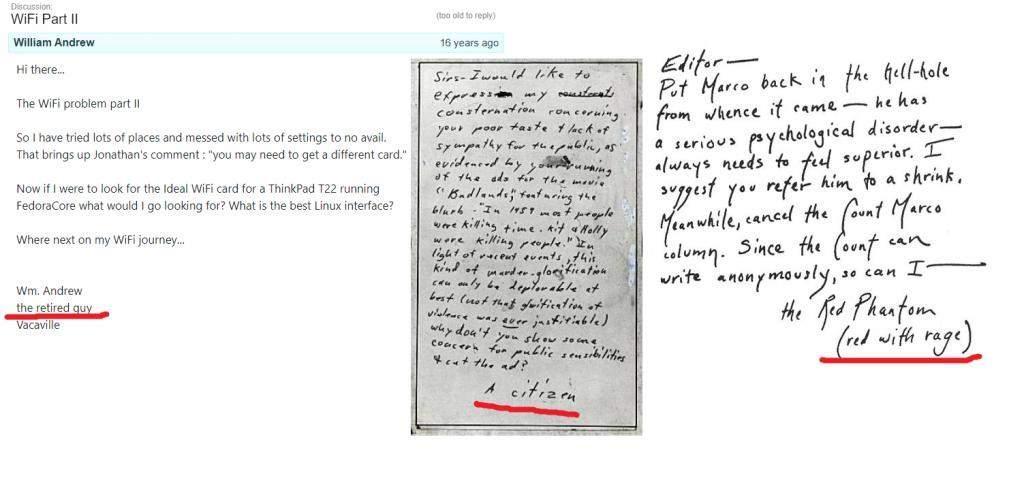 Discussion:
WiFi Part II
(too old to reply)
William Andrew
16 years ago
Hi there...
The WiFi problem part II
So I have tried lots of places and messed with lots of settings to no avail.
That brings up Jonathan's comment : "you may need to get a different card."
Now if I were to look for the Ideal WiFi card for a ThinkPad T22 running
FedoraCore what would I go looking for? What is the best Linux interface?
Where next on my WiFi journey...
Wm. Andrew
the retired guy
Vacaville
Sirs- I would like to
express my
consternation concerning
your poor taste & lack of
sympathy for the public, as
evidenced by your running
of the ads for the movie
"Badlands", featuring the
blurb - "In 1959 most people
were killing time. Kit & Holly
were killing people." In
light of recent events, this
kind of murder-glorification
can only be deplorable at
best (not that glorification of
violence was ever justifiable)
why don't you show some
concern for public sensibilities
& cut the ad?
A citizen
Editor —
Put Marco back in the hell-hole
from whence it came — he has
a serious psychological disorder —
always needs to feel superior. I
suggest you refer him to a shrink.
Meanwhile, cancel the Count Marco
column. Since the Count can
write anonymously, so can I —
the Red Phantom
(red with rage)